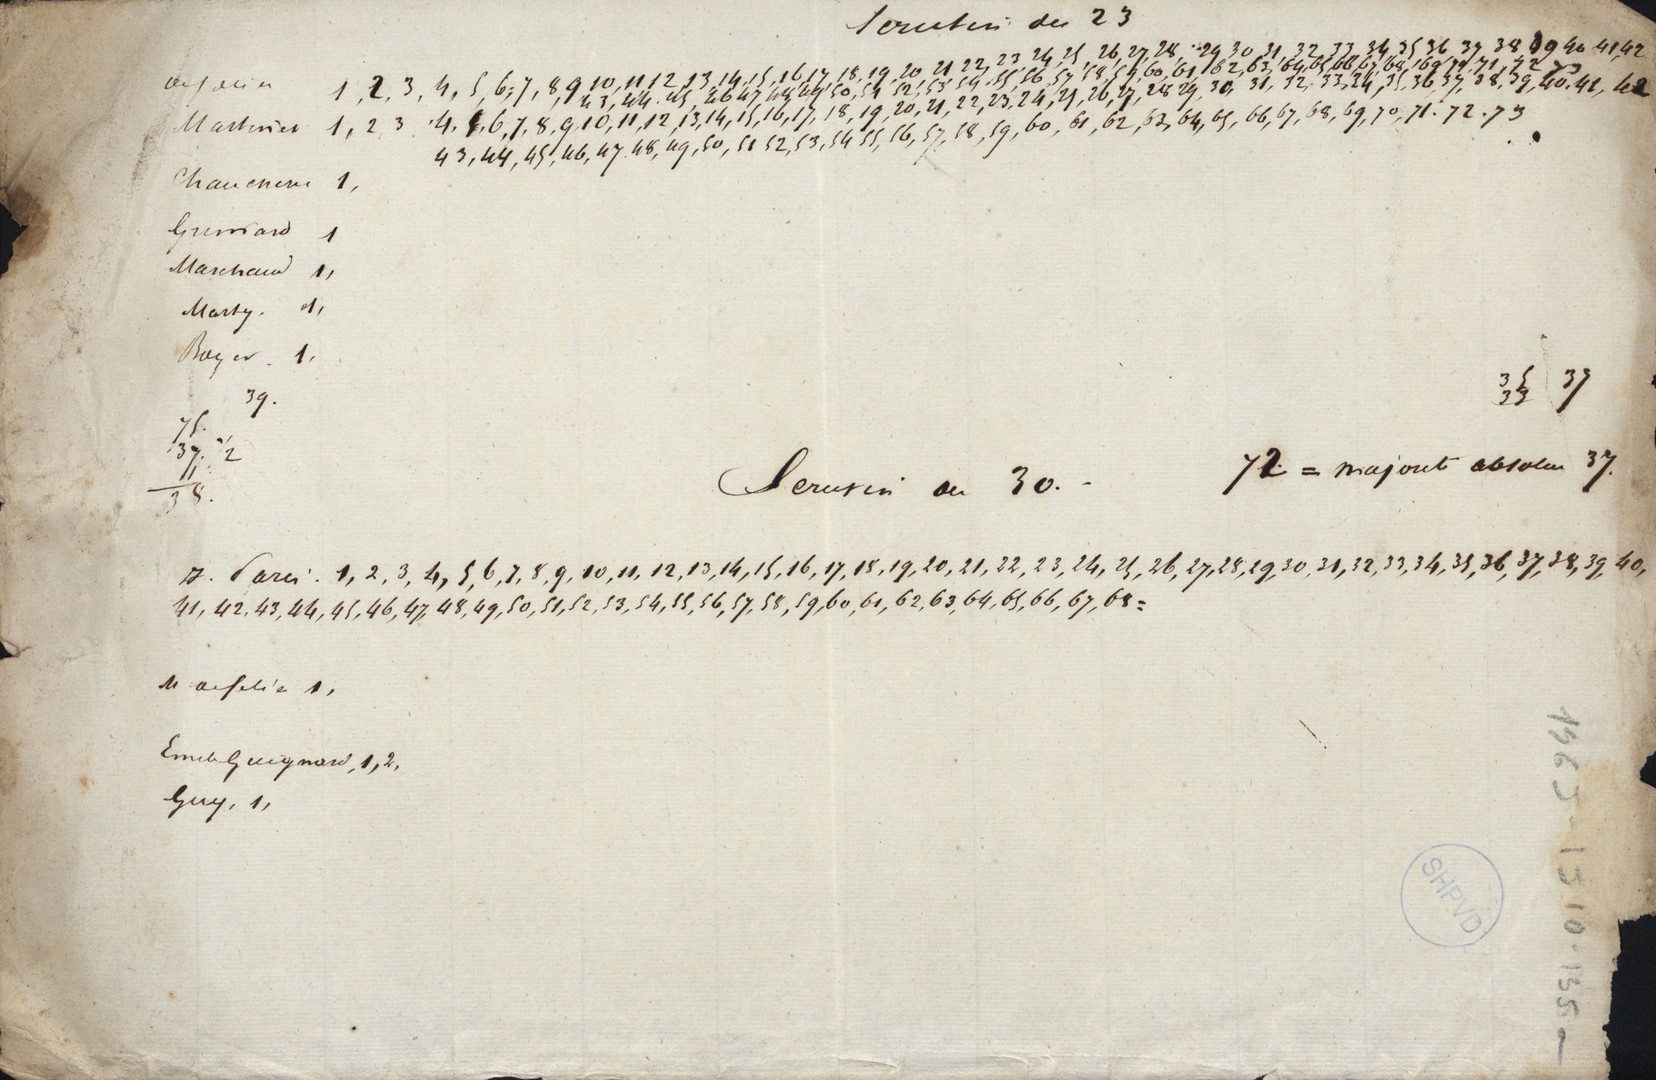 Scrutin du 23
1, 2, 3, 4, 5, 6, 7, 8, 9, 10, 11, 12, 13, 14, 15, 16, 17, 18, 19, 20, 21, 22, 23, 24, 25, 26, 27, 28, 29, 30, 31, 32, 33, 34, 35, 36, 37, 38, 39, 40, 41, 42
43, 44, 45, 46, 47, 48, 49, 50, 51, 52, 53, 54, 55, 56, 57, 58, 59, 60, 61, 62, 63, 64, 65, 66, 67, 68, 69, 70, 71, 72, 73
1, 2, 3, 4, 5, 6, 7, 8, 9, 10, 11, 12, 13, 14, 15, 16, 17, 18, 19, 20, 21, 22, 23, 24, 25, 26, 27, 28, 29, 30, 31, 32, 33, 34, 35, 36, 37, 38, 39, 40, 41, 42
43, 44, 45, 46, 47, 48, 49, 50, 51, 52, 53, 54, 55, 56, 57, 58, 59, 60, 61, 62, 63, 64, 65, 66, 67, 68, 69, 70, 71. 72. 73
1,
1
Marchand 1,
Marty. 1,
Boyer. 1.
39.
35 37
33
75.
37. 1/2
38.
Scrutin du 30.
72 = majorité absolue 37.
1, 2, 3, 4, 5, 6, 7, 8, 9, 10, 11, 12, 13, 14, 15, 16, 17, 18, 19, 20, 21, 22, 23, 24, 25, 26, 27, 28, 29, 30, 31, 32, 33, 34, 35, 36, 37, 38, 39, 40,
41, 42, 43, 44, 45, 46, 47, 48, 49, 50, 51, 52, 53, 54, 55, 56, 57, 58, 59, 60, 61, 62, 63, 64, 65, 66, 67, 68 =
1,
Emile Guignard, 1, 2,
Guy, 1,
SHPVD